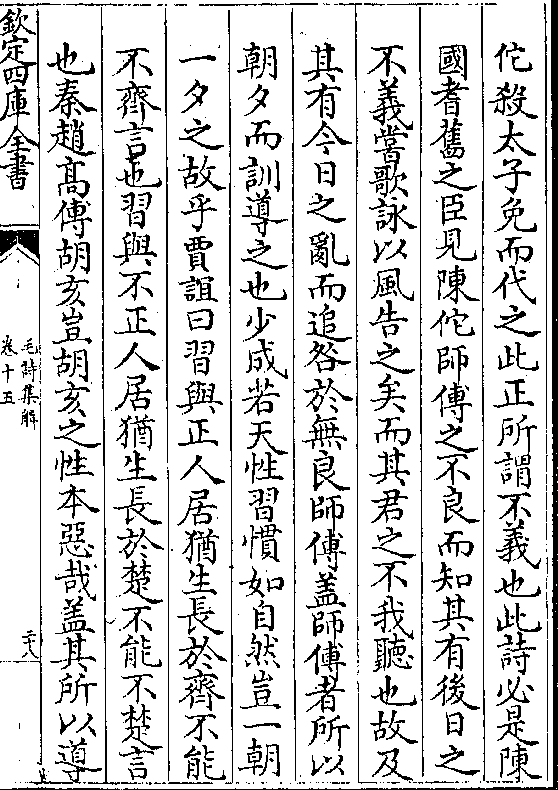 佗殺太子免而代之此正所謂不義也此詩必是陳
國者舊之臣見陳佗師傅之不良而知其有後日之
不義嘗歌詠以風告之矣而其君之不我聽也故及
其有今日之亂而追咎於無良師傅蓋師傅者所以
朝夕而訓導之也少成若天性習慣如自然豈一朝
一夕之故乎賈誼曰習與正人居猶生長於齊不能
不齊言也習與不正人居猶生長於楚不能不楚言
也秦趙高傅胡亥豈胡亥之性本惡哉蓋其所以導
欽定四庫全書
毛詩集解
卷十五
二十八